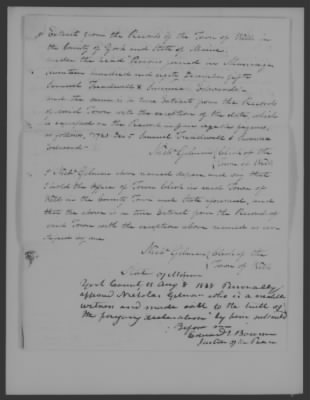 Extract from the Records of the Town of Wells in
the County of York and State of Maine,
under the head "Persons joined in Marriage
seventeen hundred and eighty December fifth
Samuel Treadwell & Susanna Edwards"
and the same is true Extract from the Records
of said Town with the exception of the date, which
is expressed on the Record in figures against
as follows, 1780 Dec 5 Samuel Treadwell & Susanna
Edwards"
Nich. Gilman Clerk of the
Town of Wells
I Nich. Gilman above named depose and say that
I hold the Office of Town Clerk in said Town of
Wells in the County Town and State aforesaid, and
that the above is a true Extract from the Record of
said Town with the exception above named as
by me
Nich. Gilman Clerk of the
Town of Wells
State of Maine
York County ss Aug 8 Personally
appeared Nicholas Gilman who is a credible
witness and made oath to the truth of
the foregoing declaration by him subscribed
Before me
Edward E. Bourne
Justice of the Peace